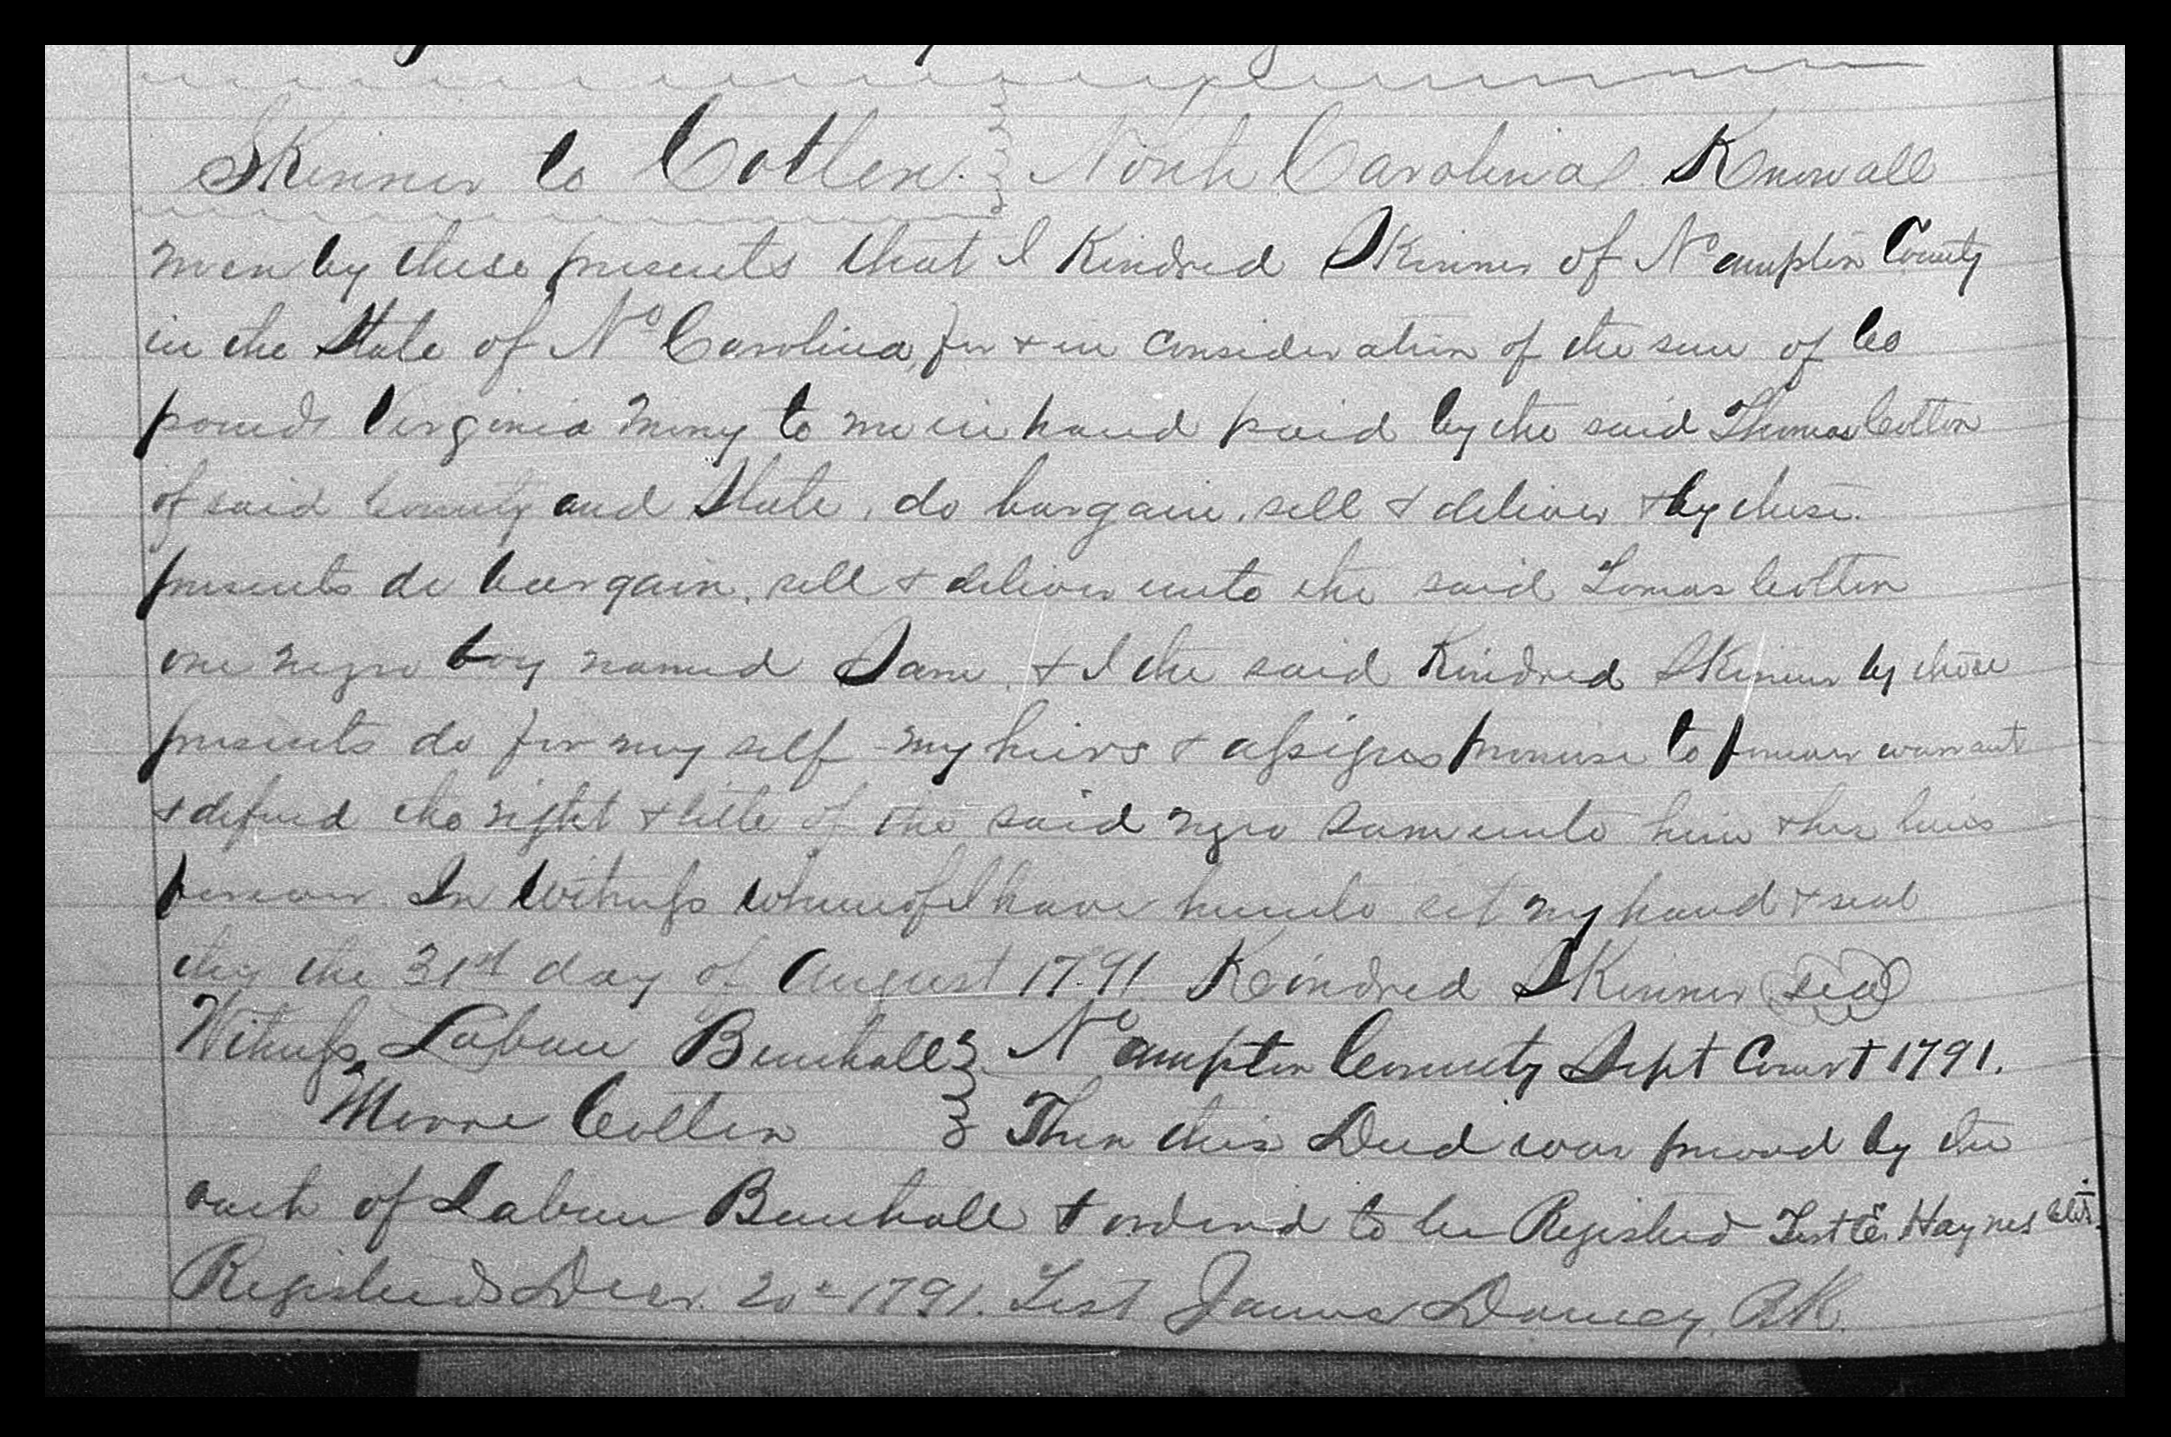 Skinner to Cotten. North Carolina Know all
men by these presents that I Kindred Skinner of No ampton County
in the State of No Carolina, for & in consideration of the sum of
pounds Virginia money to me in hand paid by the said Thomas Cotton
of said County and State, do bargain, sell & deliver & by these
presents do bargain, sell & deliver unto the said Tomas Cotten
one negro boy named Sam & I the said Kindred Skinner by these
presents do for my self my heirs & assigns promise to forever warrant
& defend the right & title of the said negro Sam unto him & his heirs
forever. In Witness whereof I have hereunto set my hand & seal
this the 31st day of August 1791 Kindred Skinner seal
Witness Laban No ampton County Sept Court 1791.
Moore Cotten Then this Deed was proved by the
oath of Laban & ordered to be Registered Test E. Haynes
Registered Decr. 20th 1791. Test James